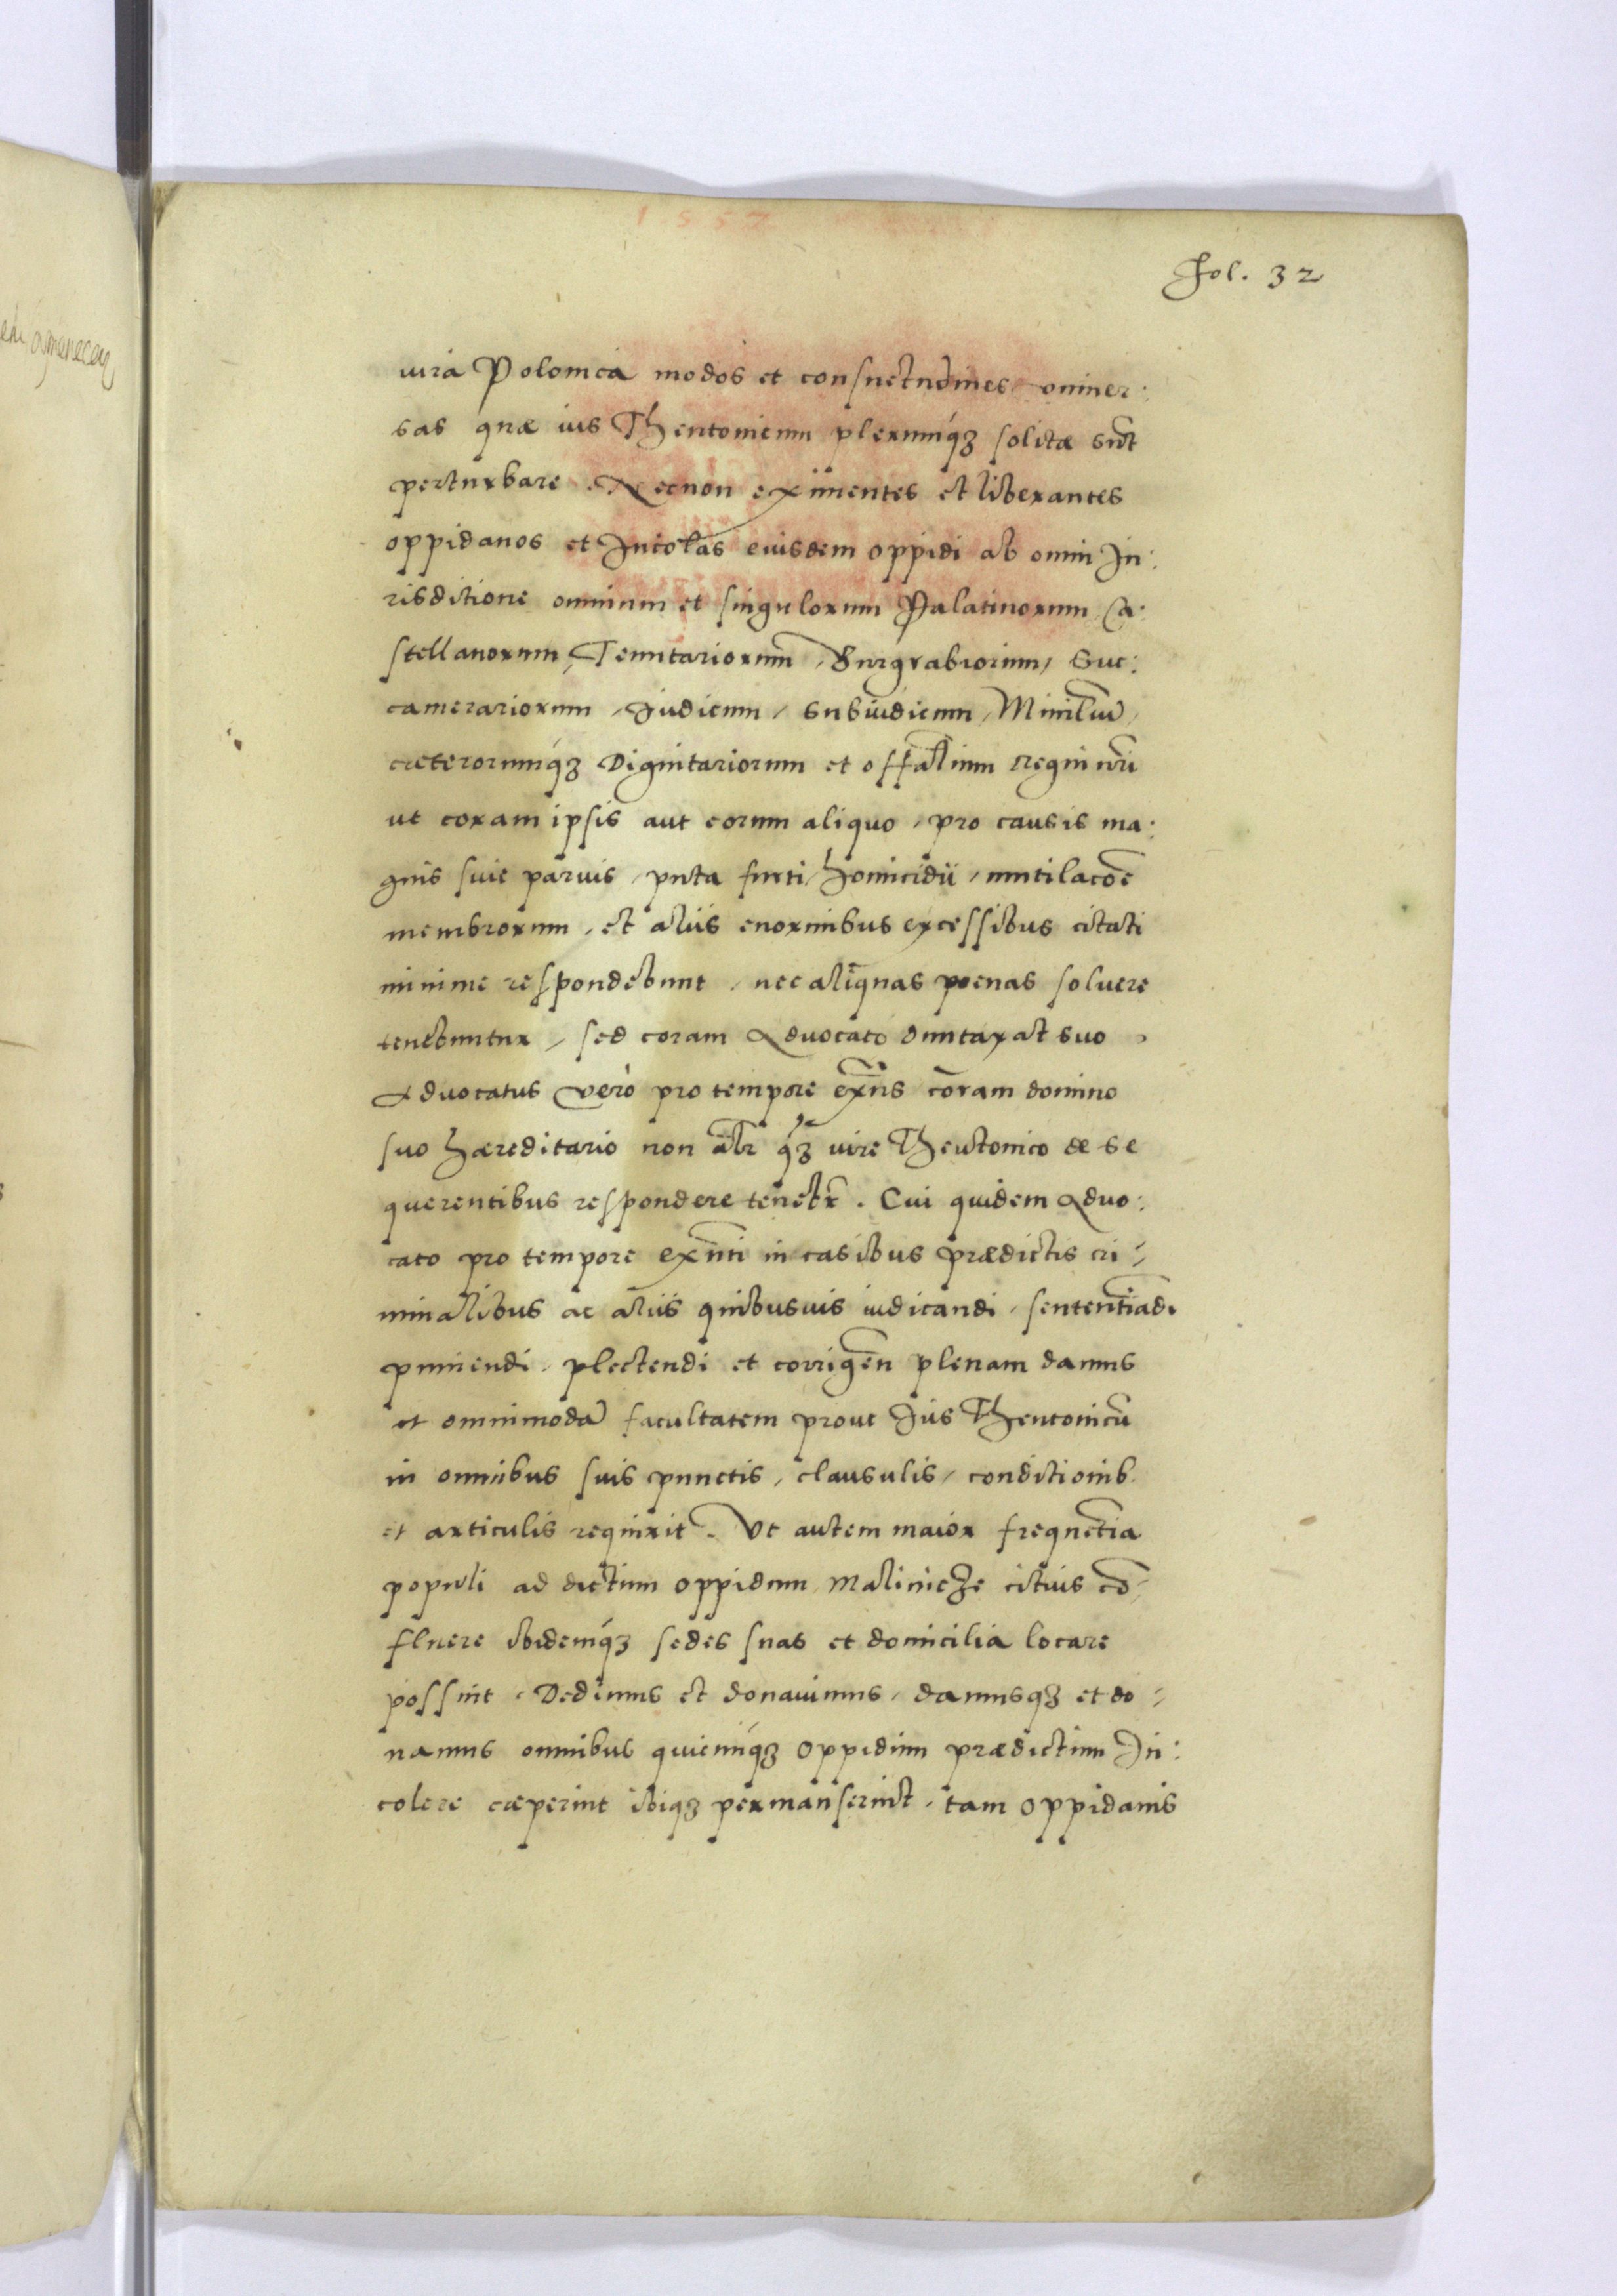 1557
Fol. 32
iura Polonica modos et consuetudines univer:
sas quæ ius Theutonicum plerumq́ꝫ solitæ sūt
perturbare. Necnon eximentes et liberantes
oppidanos et Incolas eiusdem oppidi ab omni Iu:
risditione omnium et singulorum Palatinorum, Ca:
stellanorum, Tenutariorum, Burgrabiorum, Suc:
camerariorum, Iudicum, Subiudicum, Minĩlium,
cæterorumq́ꝫ Dignitariorum et offãlium regni nr̃i
ut coram ipsis aut eorum aliquo, pro causis ma:
gnis siue paruis, puta furti, homicidii, mutilacõe
membrorum, et aliis enormibus excessibus citati
minime respondebunt, nec aliquas poenas soluere
tenebuntur, sed coram Aduocato duntaxat suo,
Aduocatus verò pro tempore ex̃ns coram domino
suo hæreditario non alr̃ q́ꝫ iure Theutonico de se
querentibus respondere tenebr̃. Cui quidem Aduo:
cato pro tempore exñti in casibus prædictis cri:
minalibus ac aliis quibusuis iudicandi, sententiãdi
puniendi, plectendi et corrigẽn plenam damus
et omnimodã facultatem prout Ius Theutonicũ
in omnibus suis punctis, clausulis, conditionib.
et articulis requirit. Ut autem maior frequẽtia
populi ad dictum oppidum Malinicze citius cõ:
fluere ibidemq́ꝫ sedes suas et domicilia locare
possint. Dedimus et donauimus, damusqꝫ et do:
namus omnibus quicunq́ꝫ oppidum prædictum In:
colere cæperint ibiqꝫ permanserint, tam oppidanis